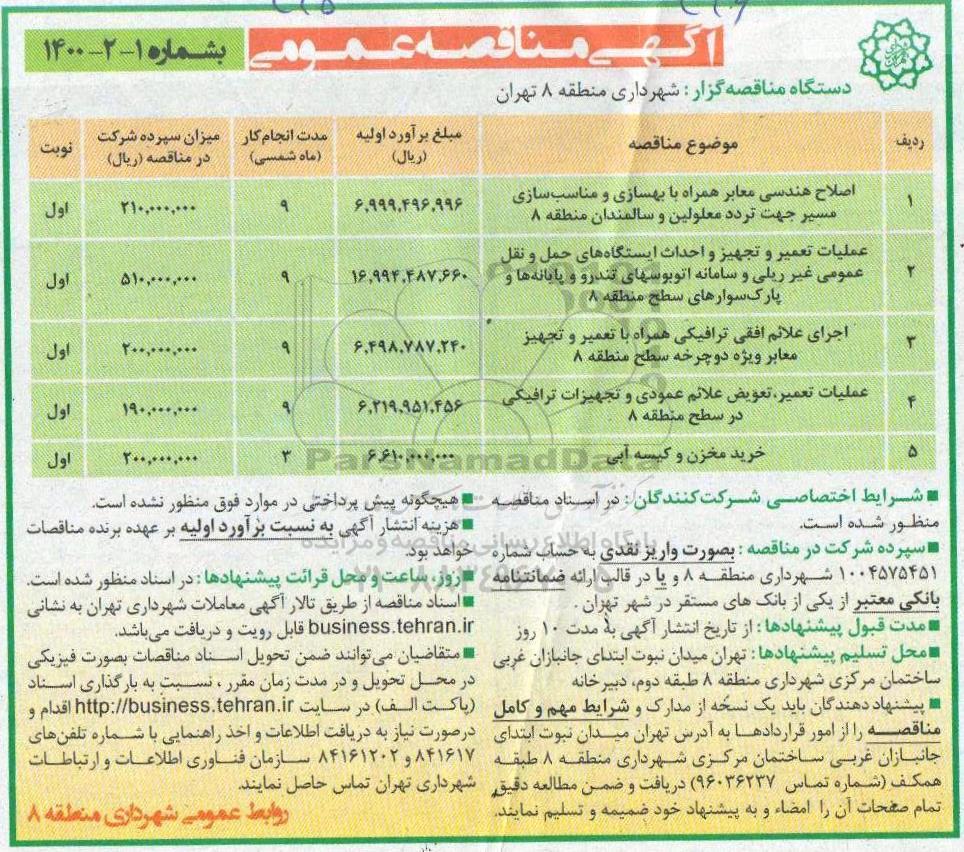 آگهی مناقصه عمومی
بشماره ۱-۲-۱۴۰۰
دستگاه مناقصه‌گزار: شهرداری منطقه ۸ تهران
ردیف موضوع مناقصه مبلغ برآورد اولیه (ریال) مدت انجام‌کار (ماه شمسی) میزان سپرده شرکت در مناقصه (ریال) نوبت
۱ اصلاح هندسی معابر همراه با بهسازی و مناسب‌سازی
مسیر جهت تردد معلولین و سالمندان منطقه ۸ ۶,۹۹۹,۴۹۶,۹۹۶ ۹ ۲۱۰,۰۰۰,۰۰۰ اول
۲ عملیات تعمیر و تجهیز و احداث ایستگاه‌های حمل و نقل
عمومی غیر ریلی و سامانه اتوبوسهای تندرو و پایانه‌ها و
پارک‌سوارهای سطح منطقه ۸ ۱۶,۹۹۴,۴۸۷,۶۶۰ ۹ ۵۱۰,۰۰۰,۰۰۰ اول
۳ اجرای علائم افقی ترافیکی همراه با تعمیر و تجهیز
معابر ویژه دوچرخه سطح منطقه ۸ ۶,۴۹۸,۷۸۷,۲۴۰ ۹ ۲۰۰,۰۰۰,۰۰۰ اول
۴ عملیات تعمیر،تعویض علائم عمودی و تجهیزات ترافیکی
در سطح منطقه ۸ ۶,۲۱۹,۹۵۱,۴۵۶ ۹ ۱۹۰,۰۰۰,۰۰۰ اول
۵ خرید مخزن و کیسه آبی ۶,۶۱۰,۰۰۰,۰۰۰ ۳ ۲۰۰,۰۰۰,۰۰۰ اول
ParsNamadData
پایگاه اطلاع رسانی مناقصه و مزایده
■ شرایط اختصاصی شرکت‌کنندگان: در اسناد مناقصه
منظور شده است.
■ سپرده شرکت در مناقصه: بصورت واریز نقدی به حساب شماره
۱۰۰۴۵۷۵۴۵۱ شهرداری منطقه ۸ و یا در قالب ارائه ضمانتنامه
بانکی معتبر از یکی از بانک های مستقر در شهر تهران.
■ مدت قبول پیشنهادها: از تاریخ انتشار آگهی به مدت ۱۰ روز
■ محل تسلیم پیشنهادها: تهران میدان نبوت ابتدای جانبازان غربی
ساختمان مرکزی شهرداری منطقه ۸ طبقه دوم، دبیرخانه
■ پیشنهاد دهندگان باید یک نسخه از مدارک و شرایط مهم و کامل
مناقصه را از امور قراردادها به آدرس تهران میدان نبوت ابتدای
جانبازان غربی ساختمان مرکزی شهرداری منطقه ۸ طبقه
همکف (شماره تماس ۹۶۰۳۶۲۳۷) دریافت و ضمن مطالعه دقیق
تمام صفحات آن را امضاء و به پیشنهاد خود ضمیمه و تسلیم نمایند.
■ هیچگونه پیش پرداختی در موارد فوق منظور نشده است.
■ هزینه انتشار آگهی به نسبت برآورد اولیه بر عهده برنده مناقصات
خواهد بود.
■ روز، ساعت و محل قرائت پیشنهادها: در اسناد منظور شده است.
■ اسناد مناقصه از طریق تالار آگهی معاملات شهرداری تهران به نشانی
business.tehran.ir قابل رویت و دریافت می‌باشد.
■ متقاضیان می‌توانند ضمن تحویل اسناد مناقصات بصورت فیزیکی
در محل تحویل و در مدت زمان مقرر، نسبت به بارگذاری اسناد
(پاکت الف) در سایت http://business.tehran.ir اقدام و
درصورت نیاز به دریافت اطلاعات و اخذ راهنمایی با شماره تلفن‌های
۸۴۱۶۱۷ و ۸۴۱۶۱۲۰۲ سازمان فناوری اطلاعات و ارتباطات
شهرداری تهران تماس حاصل نمایند.
روابط عمومی شهرداری منطقه ۸